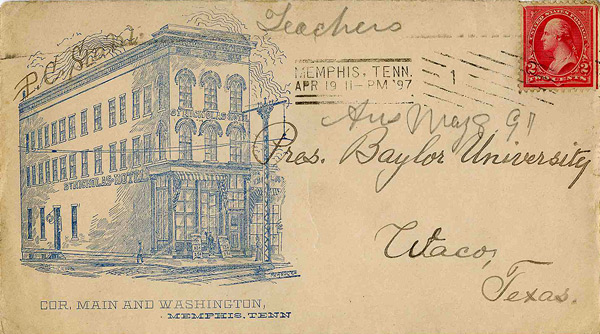 Teachers
P.C. Stant
MEMPHIS, TENN.
APR 19 11-PM '97
1
UNITED STATES
2 2
TWO CENTS
Ans May 2 97
ST. NICHOLAS HOTEL
ST. NICHOLAS HOTEL
Pres. Baylor University
Waco,
Texas.
COR. MAIN AND WASHINGTON,
MEMPHIS, TENN